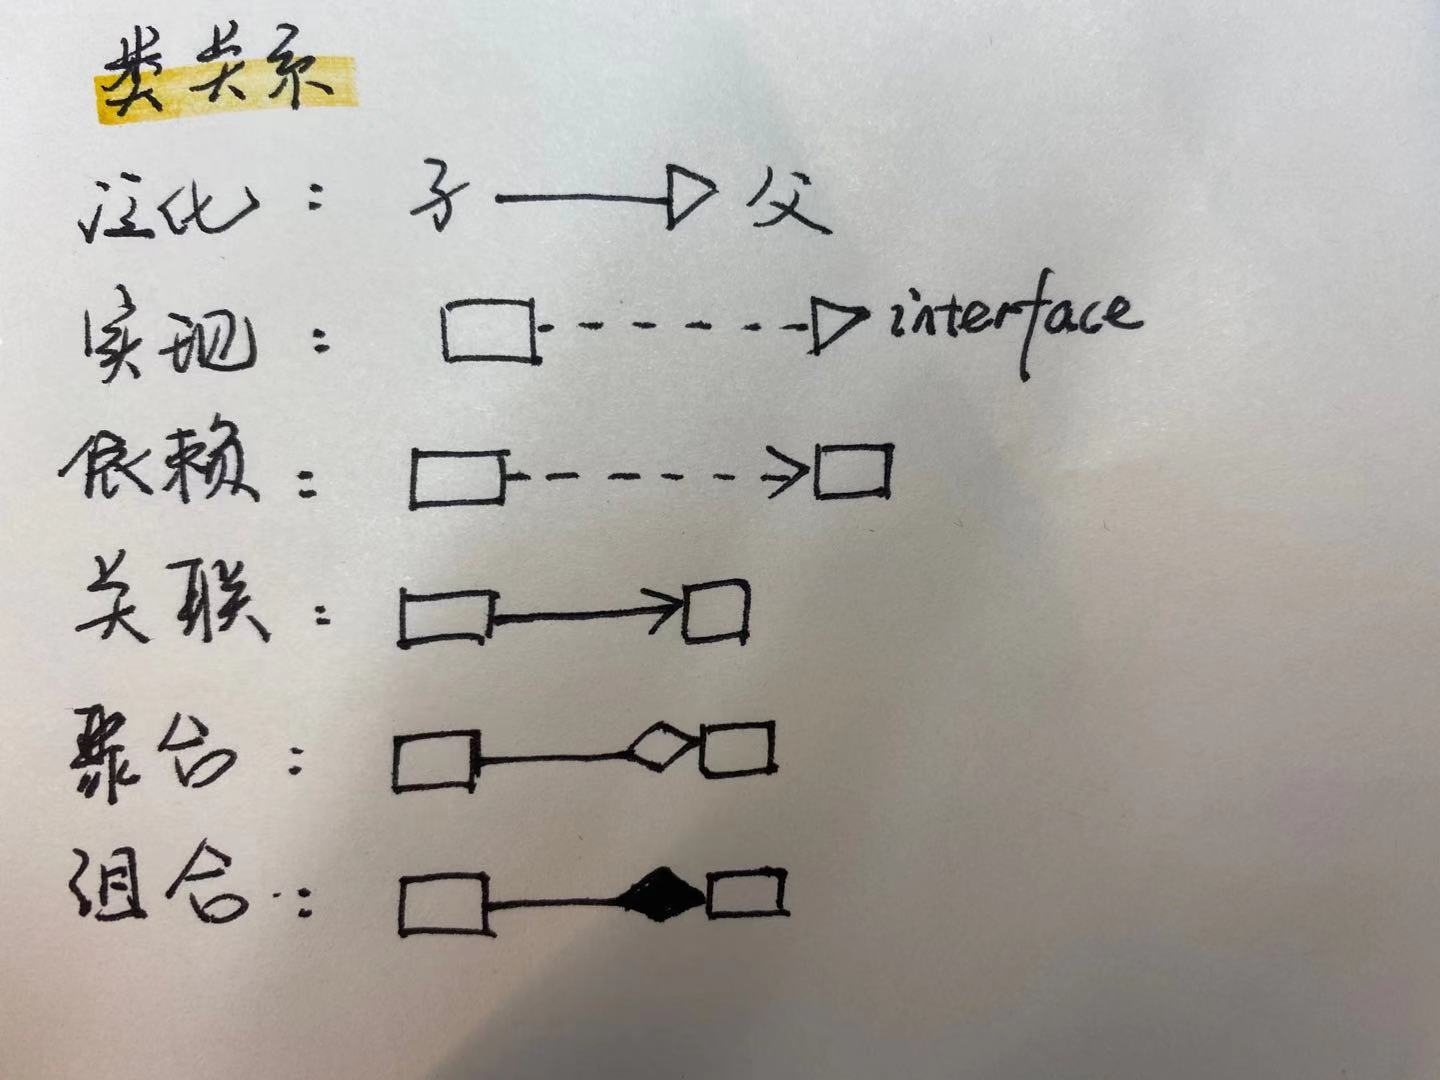 类关系
泛化： 子 父
实现： interface
依赖：
关联：
聚合：
组合：